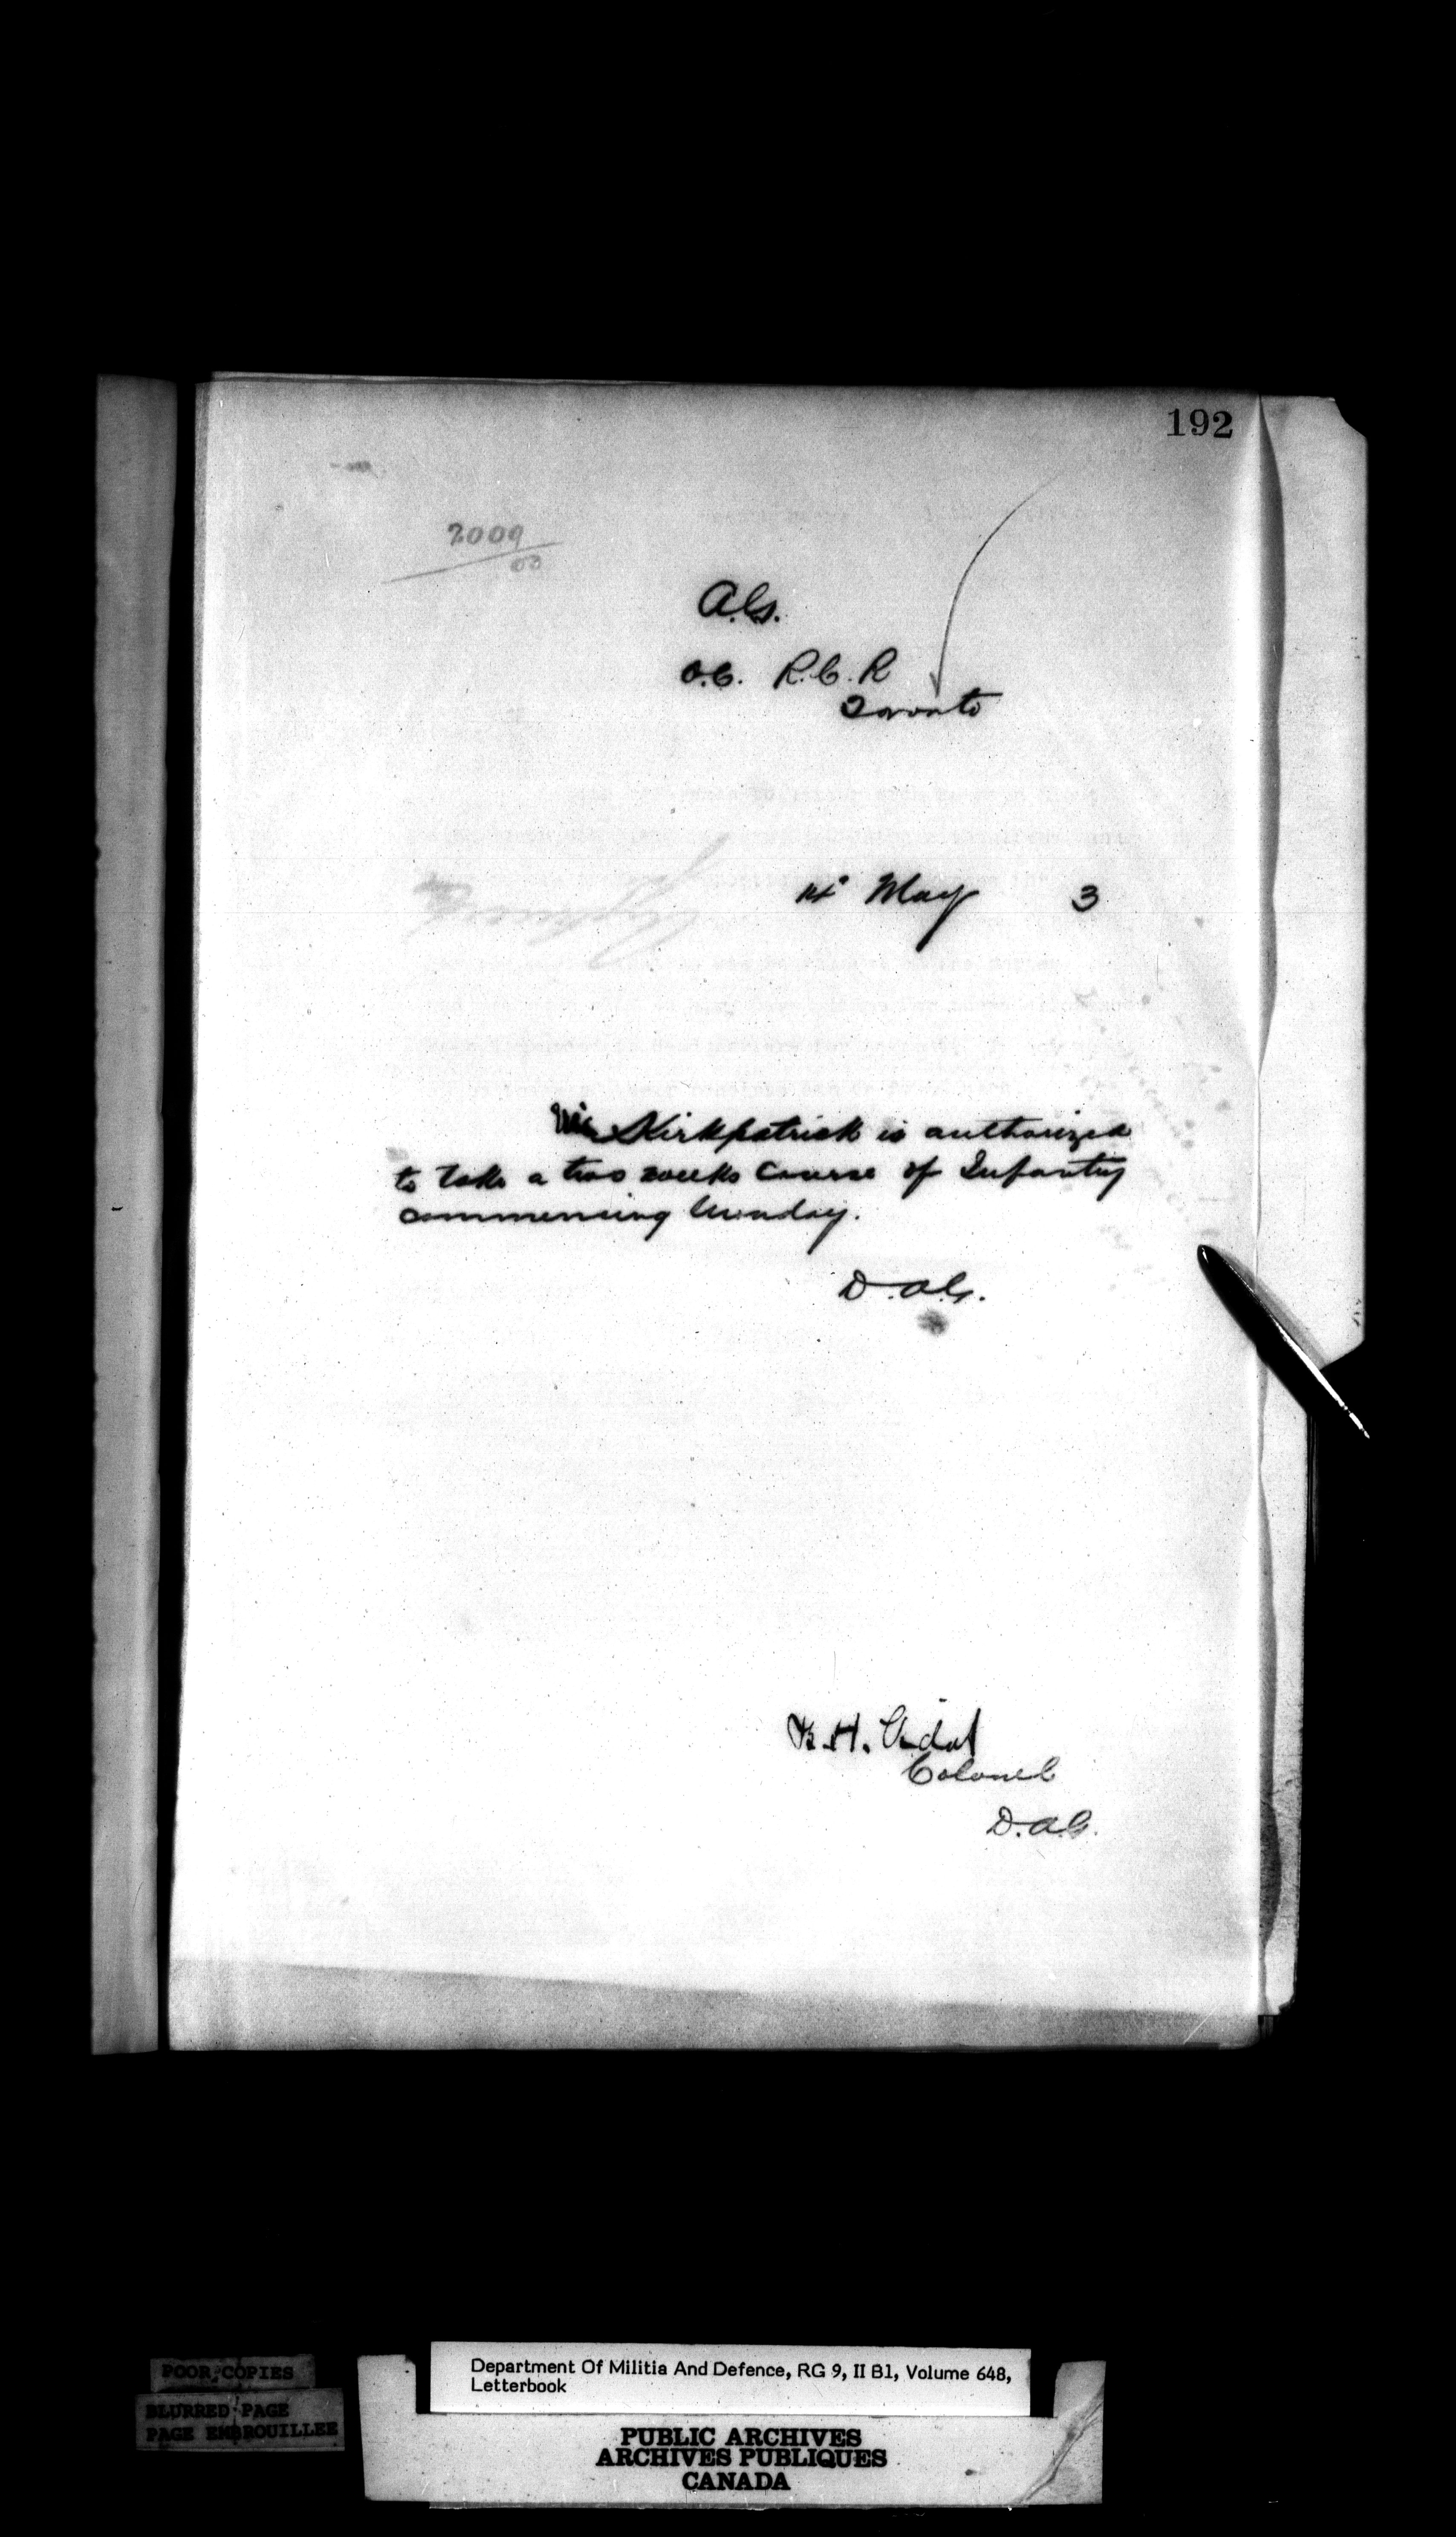 192
2009
03
A.G.
O.C. R.C.R
Toronto
14 May 3
Kirkpatrick is authorized
to take a two weeks Course of Infantry
commencing Monday.
D.A.G.
B.H. Vidal
Colonel
D.A.G.
POOR COPIES
BLURRED PAGE
PAGE EMBROUILLEE
Department Of Militia And Defence, RG 9, II B1, Volume 648,
Letterbook
PUBLIC ARCHIVES
ARCHIVES PUBLIQUES
CANADA